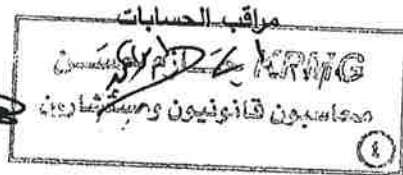 مراقب الحسابات
KPMG حازم حسن
محاسبون قانونيون ومستشارون
٤